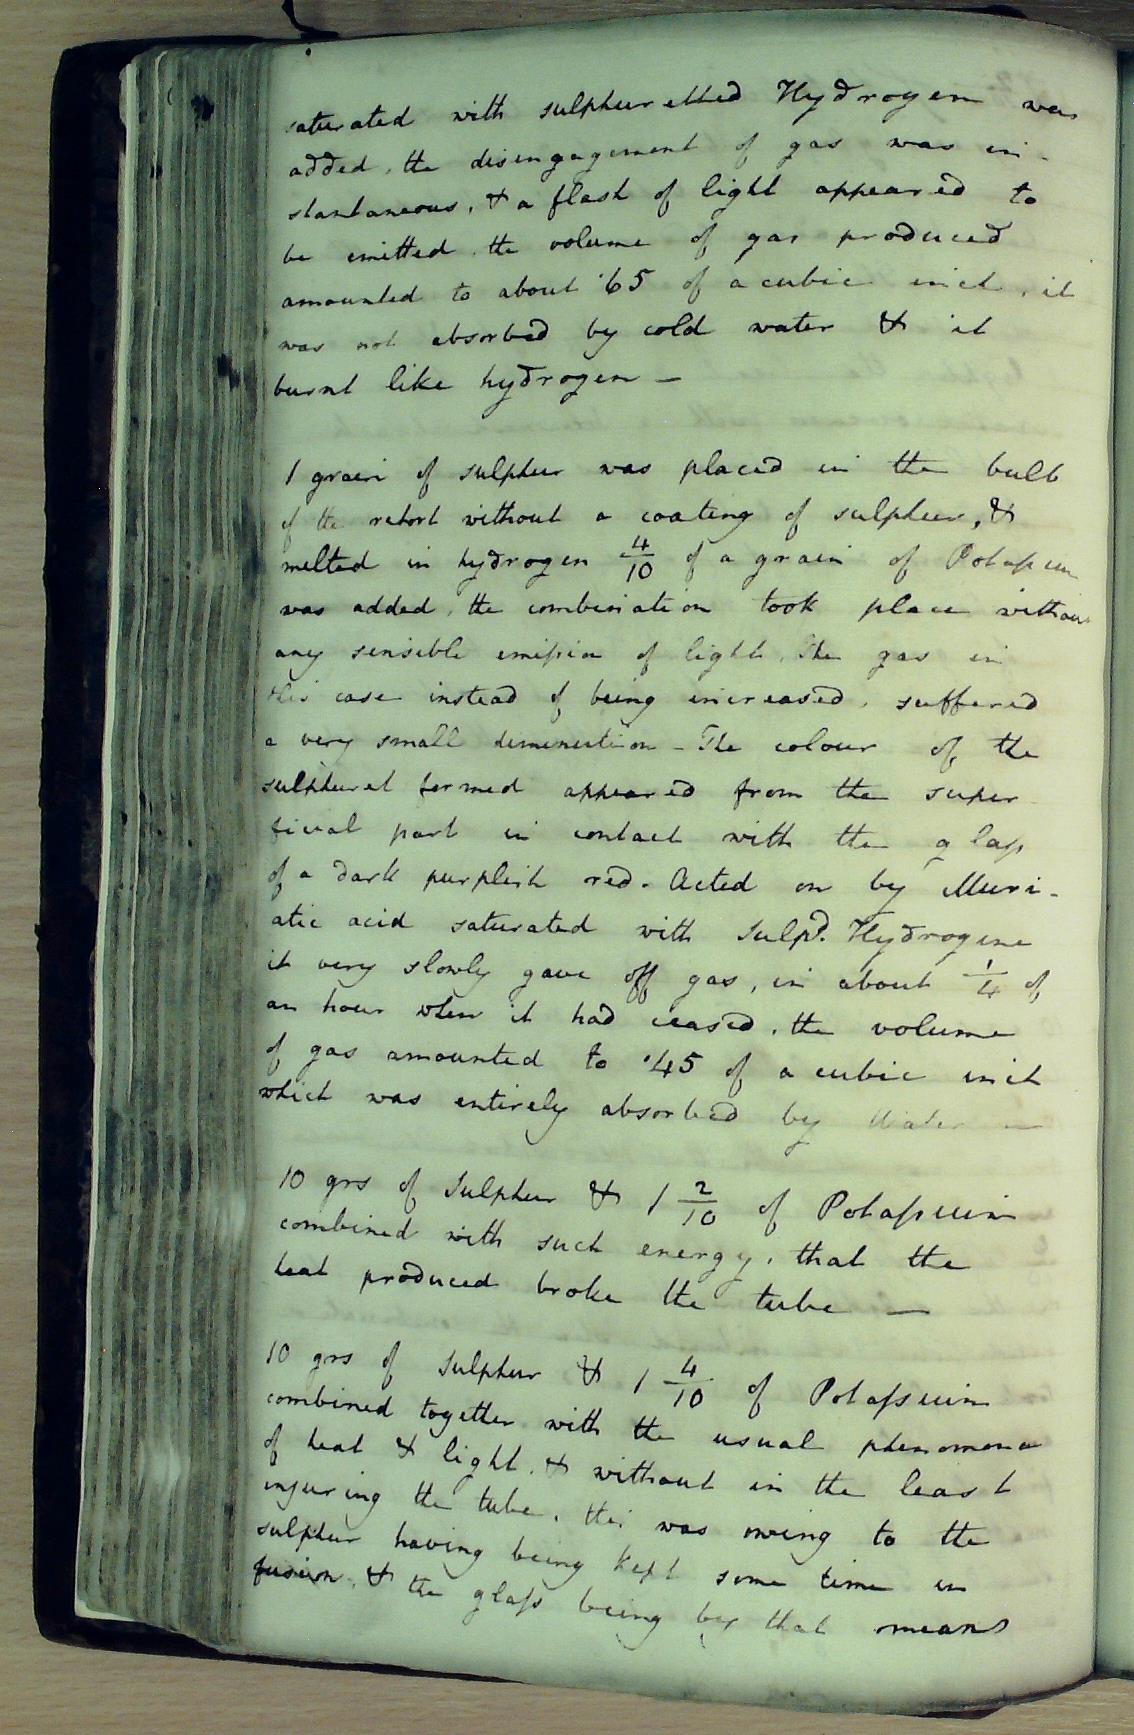 saturated with sulphuretted Hydrogen was
added, the disengagement of gas was in-
stantaneous, & a flash of light appeared to
be emitted. the volume of gas produced
amounted to about ·65 of a cubic inch, it
was not absorbed by cold water & it
burnt like hydrogen —
1 grain of sulphur was placed in the bulb
of the retort without a coating of sulphur, &
melted in hydrogen 4/10 of a grain of Potaſsium
was added, the combination took place without
any sensible emiſsion of light. The gas in
this case instead of being increased, suffered
a very small diminution - The colour of the
sulphuret formed appeared from the super
ficial part in contact with the glaſs
of a dark purplish red. Acted on by Muri-
atic acid saturated with Sulpd. Hydrogene
it very slowly gave off gas, in about 1/4 of
an hour when it had ceased, the volume
of gas amounted to ·45 of a cubic inch
which was entirely absorbed by Water —
10 grs of Sulphur & 1 2/10 of Potaſsium
combined with such energy, that the
heat produced broke the tube —
10 grs of Sulphur & 1 4/10 of Potaſsium
combined together with the usual phenomena
of heat & light, & without in the least
injuring the tube, this was owing to the
sulphur having being kept some time in
fusion, & the glaſs being by that means